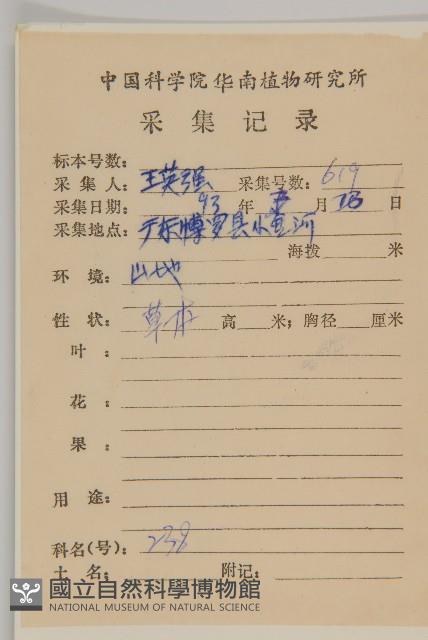 中国科学院华南植物研究所
采集记录
标本号数:
采集人: 王英强 采集号数: 619
采集日期: 93 年 月 18 日
采集地点: 广东博罗县
海拨 米
环境: 山地
性状: 草本 高 米; 胸径 厘米
叶:
花:
果:
用途:
科名(号): 238
土名: 附记:
國立自然科學博物館
NATIONAL MUSEUM OF NATURAL SCIENCE